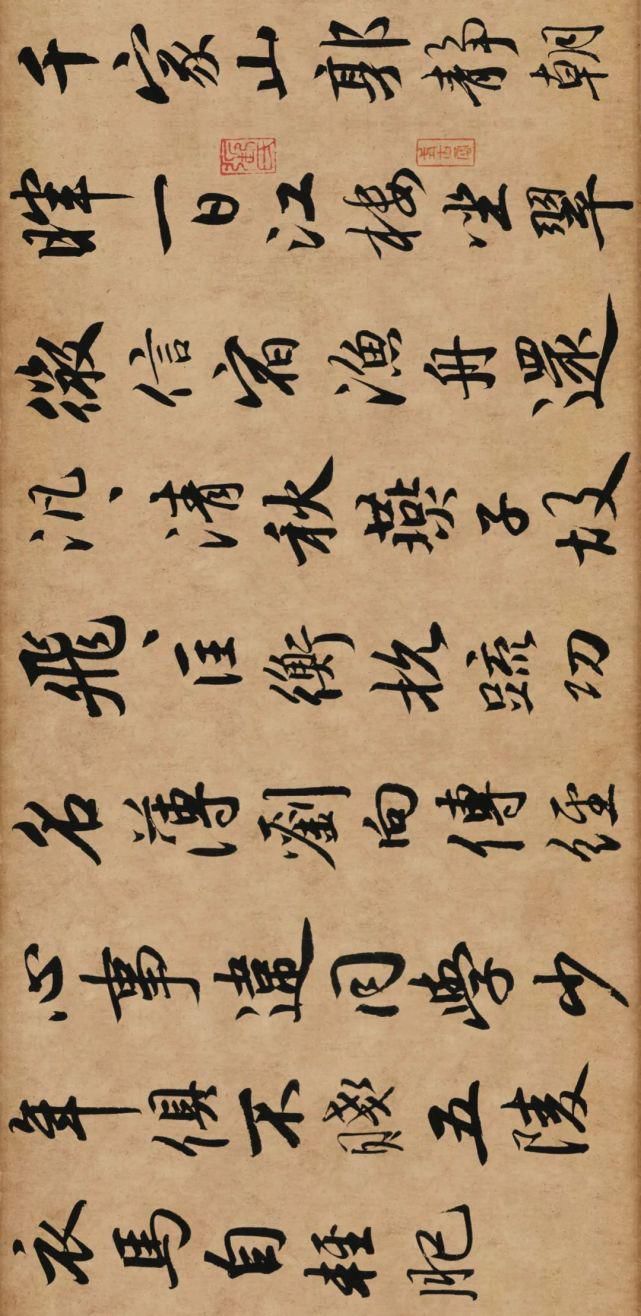 千家山郭靜朝
暉一日江樓坐翠
微信宿漁舟還
汎〻清秋燕子故
飛〻匡衡抗疏功
名薄劉向傳經
心事違同學少
年俱不賤五陵
衣馬自輕肥